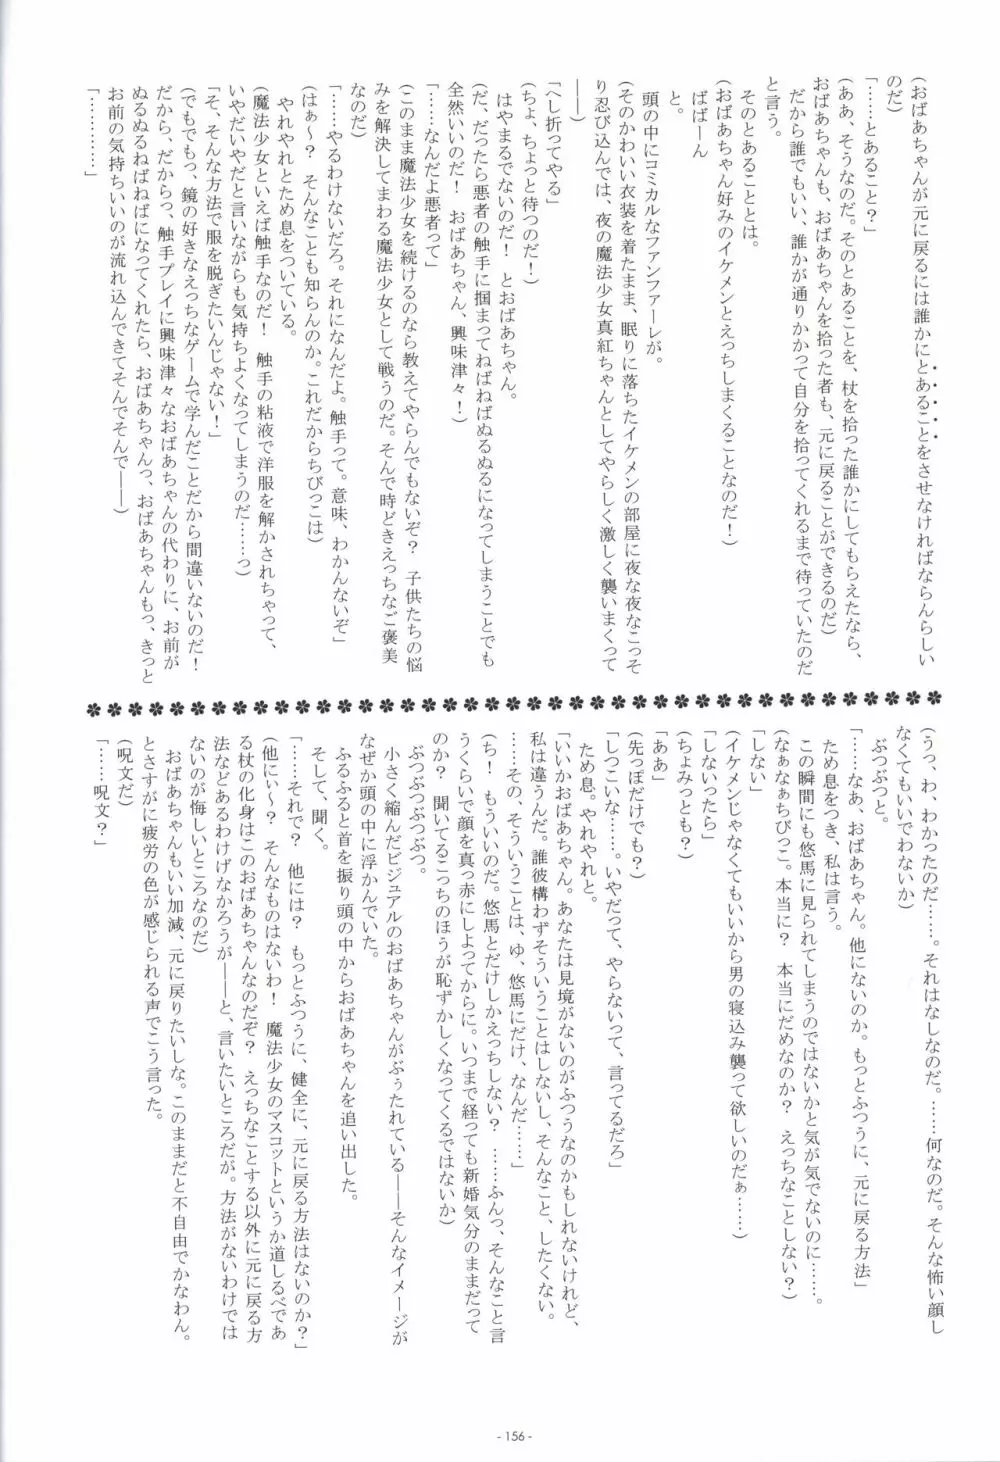 (おばあちゃんが元に戻るには誰かにとあることをさせなければならんらしい
のだ)
「……とあること?」
(ああ、そうなのだ。そのとあることを、杖を拾った誰かにしてもらえたなら、
おばあちゃんも、おばあちゃんを拾った者も、元に戻ることができるのだ)
だから誰でもいい、誰かが通りかかって自分を拾ってくれるまで待っていたのだ
と言う。
そのとあることとは。
(おばあちゃん好みのイケメンとえっちしまくることなのだ!)
ばばーん
と。
頭の中にコミカルなファンファーレが。
(そのかわいい衣装を着たまま、眠りに落ちたイケメンの部屋に夜な夜なこっそ
り忍び込んでは、夜の魔法少女真紅ちゃんとしてやらしく激しく襲いまくって
――)
「へし折ってやる」
(ちょ、ちょっと待つのだ!)
はやまるでないのだ! とおばあちゃん。
(だ、だったら悪者の触手に掴まってねばねばぬるぬるになってしまうことでも
全然いいのだ! おばあちゃん、興味津々!)
「……なんだよ悪者って」
(このまま魔法少女を続けるのなら教えてやらんでもないぞ? 子供たちの悩
みを解決してまわる魔法少女として戦うのだ。そんで時どきえっちなご褒美
なのだ)
「……やるわけないだろ。それになんだよ。触手って。意味、わかんないぞ」
(はぁ〜? そんなことも知らんのか。これだからちびっこは)
やれやれとため息をついている。
(魔法少女といえば触手なのだ! 触手の粘液で洋服を解かされちゃって、
いやだいやだと言いながらも気持ちよくなってしまうのだ……っ)
「そ、そんな方法で服を脱ぎたいんじゃない!」
(でもでもっ、鏡の好きなえっちなゲームで学んだことだから間違いないのだ!
だから、だからっ、触手プレイに興味津々なおばあちゃんの代わりに、お前が
ぬるぬるねばねばになってくれたら、おばあちゃんっ、おばあちゃんもっ、きっと
お前の気持ちいいのが流れ込んできてそんでそんで――)
「…………」
(うっ、わ、わかったのだ……。それはなしなのだ。……何なのだ。そんな怖い顔し
なくてもいいでわないか)
ぶつぶつと。
「……なあ、おばあちゃん。他にないのか。もっとふつうに、元に戻る方法」
ため息をつき、私は言う。
この瞬間にも悠馬に見られてしまうのではないかと気が気でないのに……。
(なぁなぁちびっこ。本当に? 本当にだめなのか? えっちなことしない?)
「しない」
(イケメンじゃなくてもいいから男の寝込み襲って欲しいのだぁ……)
「しないったら」
(ちょみっとも?)
「ああ」
(先っぽだけでも?)
「しつこいな……。いやだって、やらないって、言ってるだろ」
ため息。やれやれと。
「いいかおばあちゃん。あなたは見境がないのがふつうなのかもしれないけれど、
私は違うんだ。誰彼構わずそういうことはしないし、そんなこと、したくない。
……その、そういうことは、ゆ、悠馬にだけ、なんだ……」
(ち! もういいのだ。悠馬とだけしかえっちしない? ……ふんっ、そんなこと言
うくらいで顔を真っ赤にしよってからに。いつまで経っても新婚気分のままだって
のか? 聞いてるこっちのほうが恥ずかしくなってくるではないか)
ぶつぶつぶつぶつ。
小さく縮んだビジュアルのおばあちゃんがぶぅたれている――そんなイメージが
なぜか頭の中に浮かんでいた。
ふるふると首を振り頭の中からおばあちゃんを追い出した。
そして、聞く。
「……それで? 他には? もっとふつうに、健全に、元に戻る方法はないのか?」
(他にぃ〜? そんなものはないわ! 魔法少女のマスコットというか道しるべであ
る杖の化身はこのおばあちゃんなのだぞ? えっちなことする以外に元に戻る方
法などあるわけげなかろうが――と、言いたいところだが。方法がないわけでは
ないのが悔しいところなのだ)
おばあちゃんもいい加減、元に戻りたいしな。このままだと不自由でかなわん。
とさすがに疲労の色が感じられる声でこう言った。
(呪文だ)
「……呪文?」
- 156 -